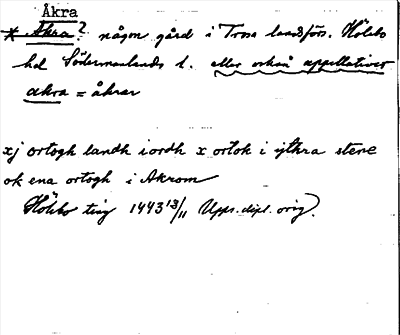 Åkra
* Åkra? någon gård i Trosa landsförs. Hölebo
hd Södermanlands l. eller också appellativet
akra = åkrar
xj ortogh landh iordh x ortok i ythra stene
ok ena ortogh i Akrom
Hölebo ting 1443 13/11 Upps. dipl. orig.